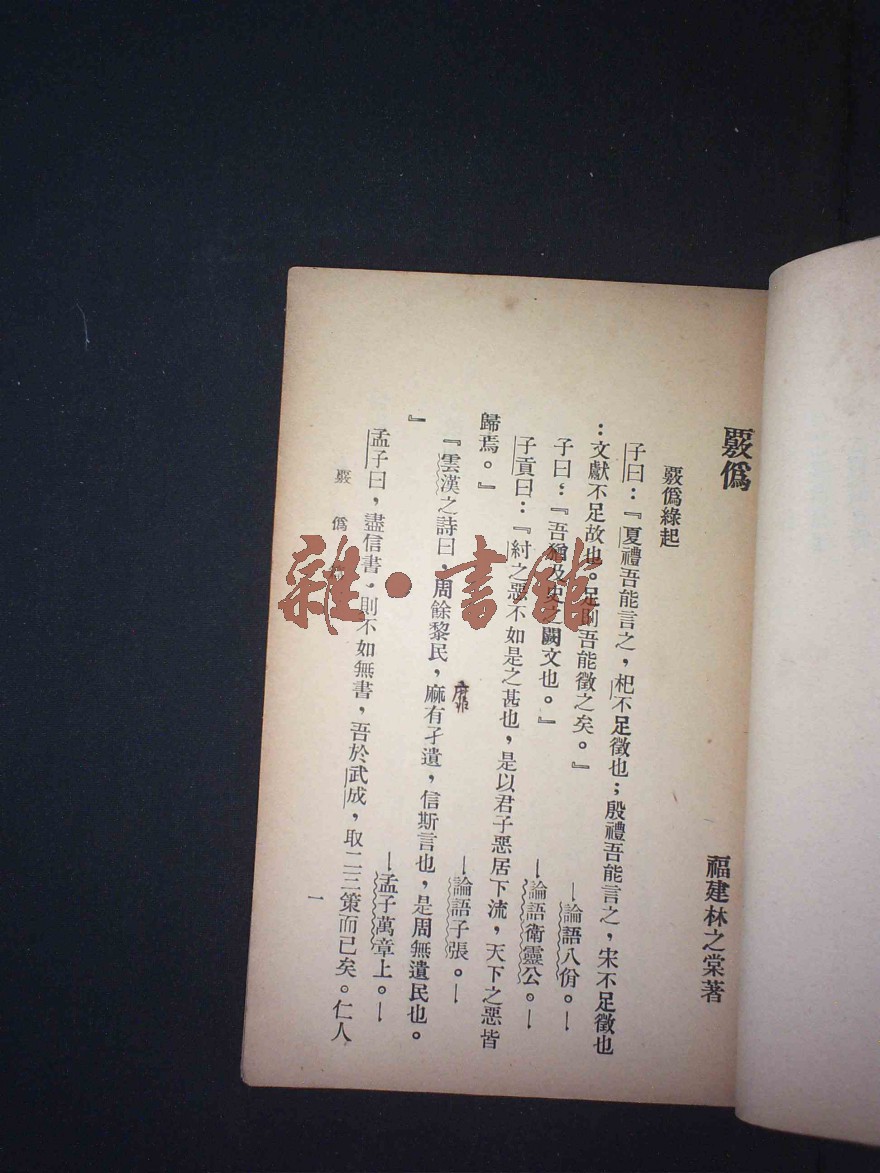 覈僞
福建林之棠著
覈僞緣起
子曰：『夏禮吾能言之，杞不足徵也；殷禮吾能言之，宋不足徵也
：文獻不足故也。足則吾能徵之矣。』
—論語八佾。—
子曰：『吾猶及史之闕文也。』
—論語衛靈公。—
子貢曰：『紂之惡不如是之甚也，是以君子惡居下流，天下之惡皆
歸焉。』
—論語子張。—
『雲漢之詩曰，周餘黎民，麻有孑遺，信斯言也，是周無遺民也。
靡
』
—孟子萬章上。—
孟子曰，盡信書，則不如無書，吾於武成，取二三策而已矣。仁人
覈僞
一
雜·書館